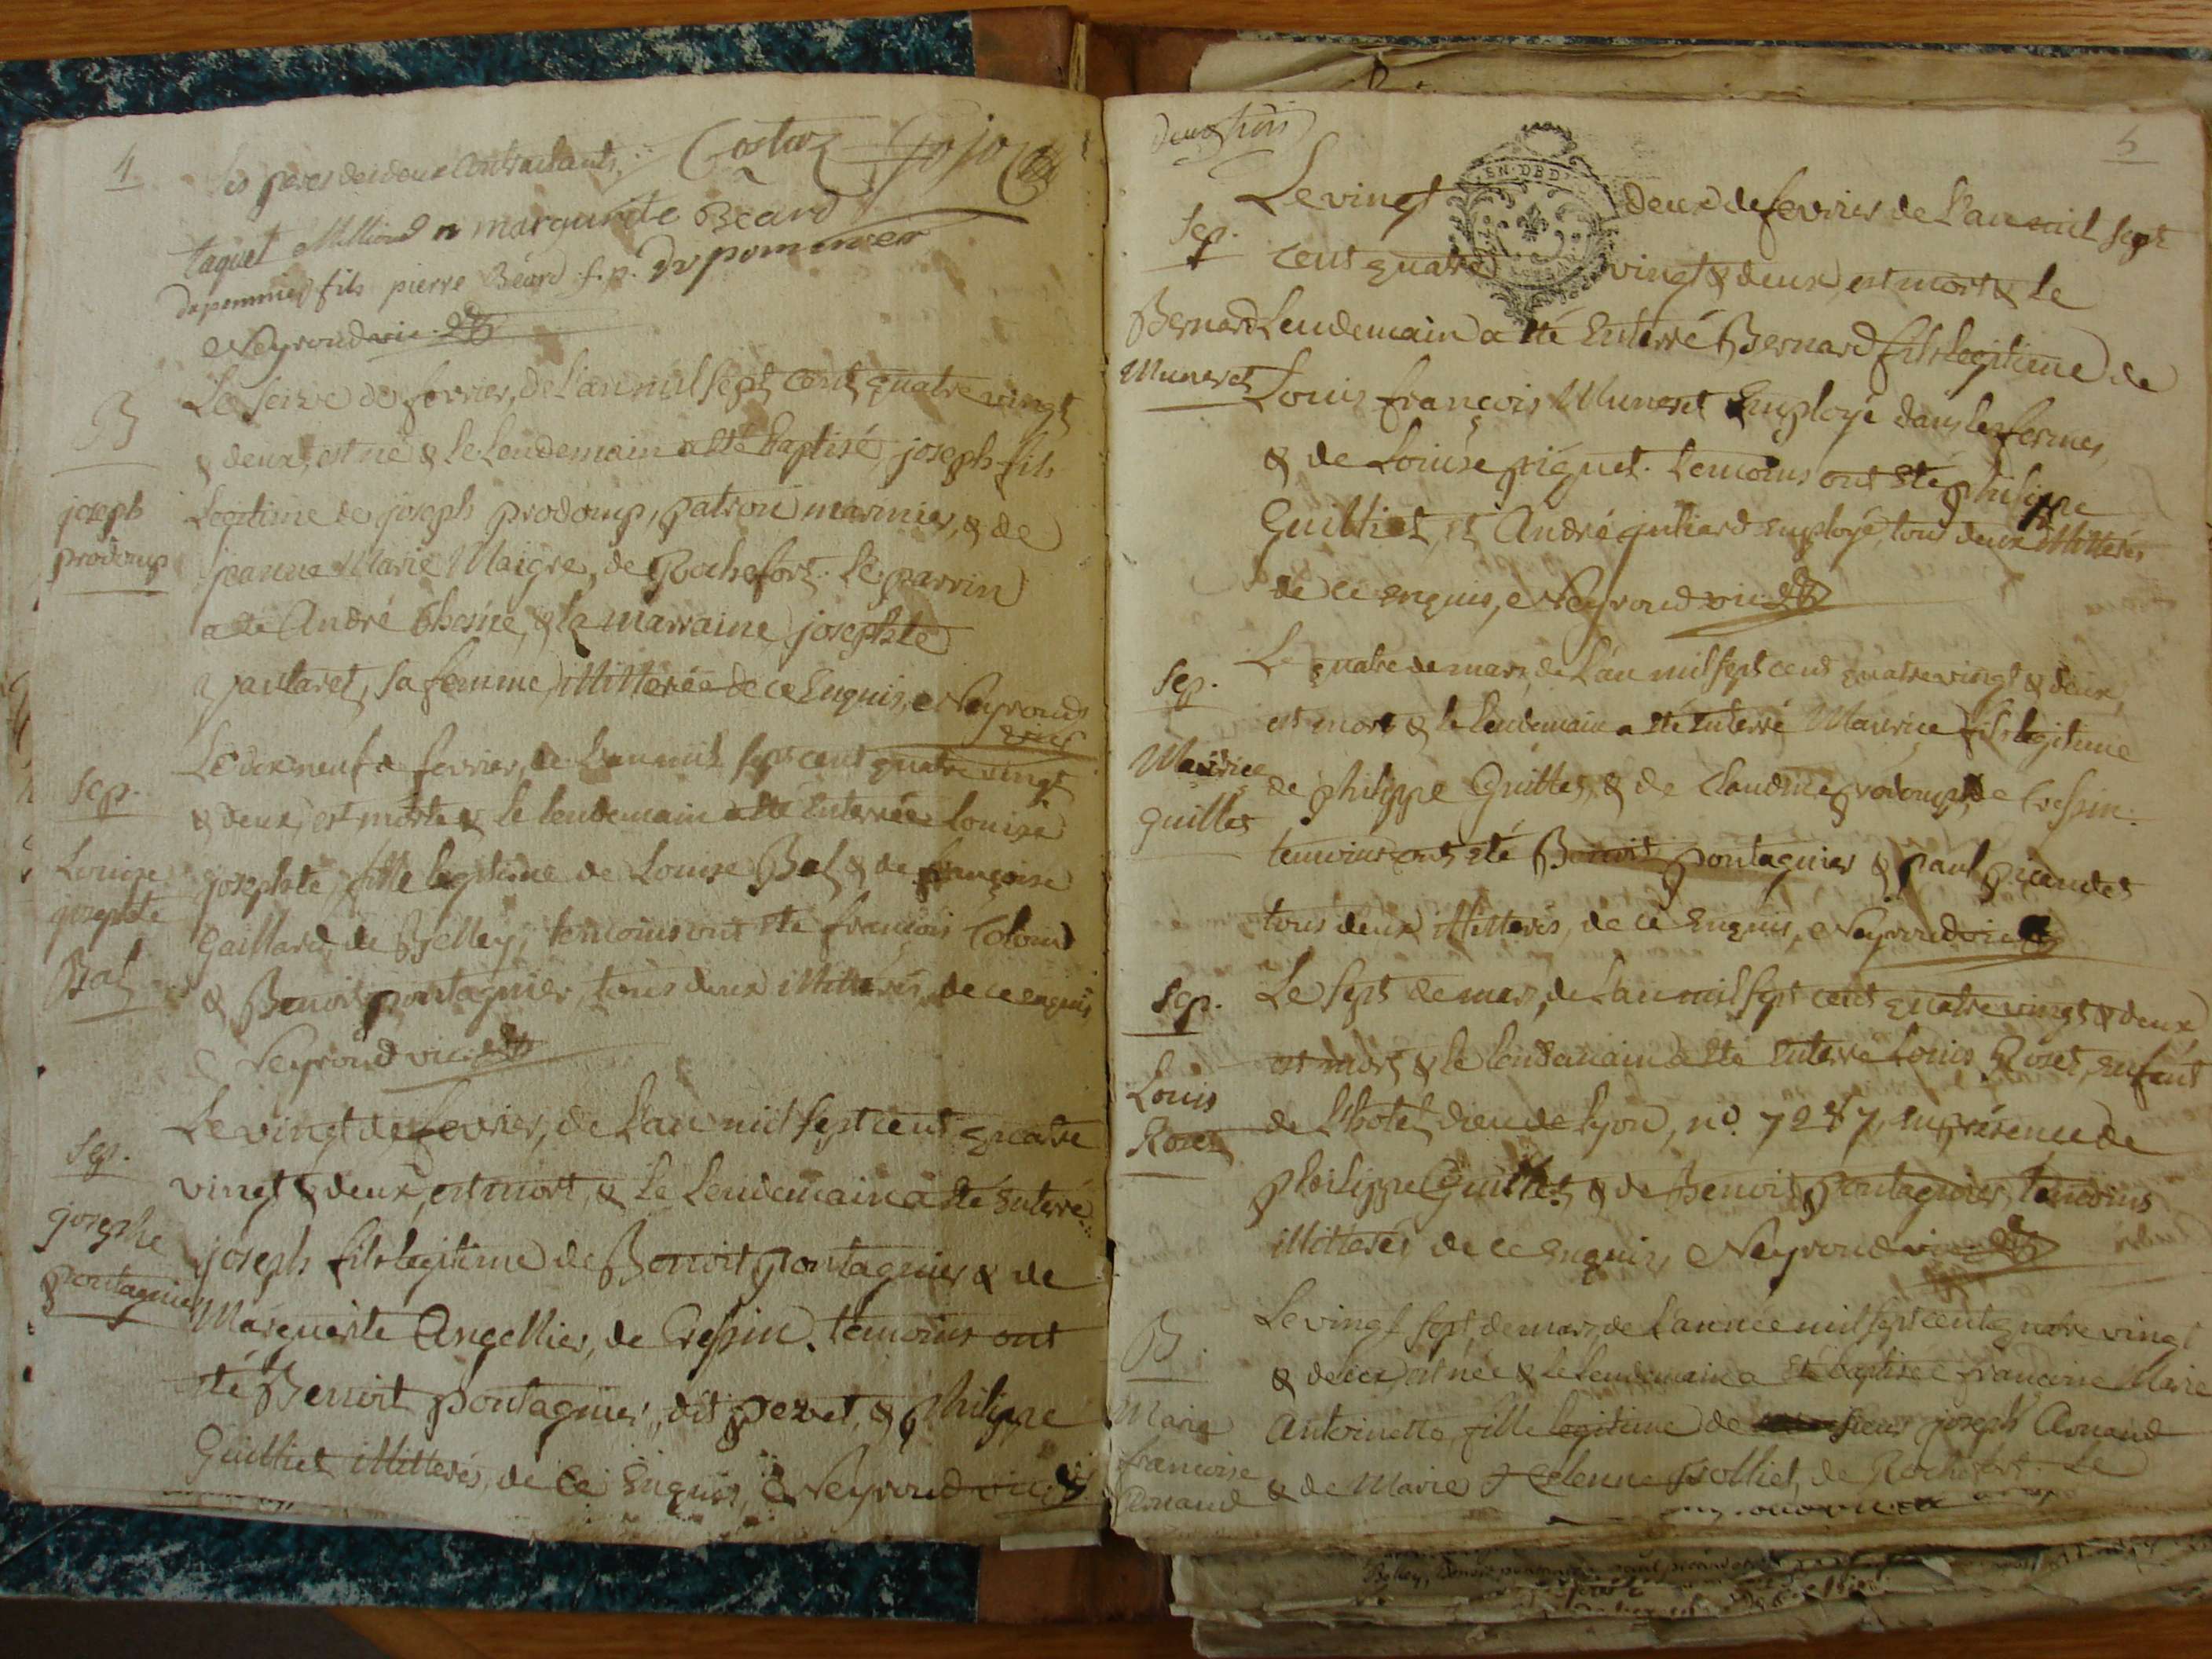 4
les peres des deux contractants. Costaz Gojoz
taquet Milliond marguerite Béard
Depommier fils pierre Béard f. p. Depommier
Neyroud vic.
B
joseph
prodomp
Le seize de fevrier, de l'an mil sept cent quatre vingt
& deux, est né & le lendemain a été baptisé, joseph fils
Legitime de joseph prodomp, patron marinier, & de
jeanne Marie Maigre, de Rochefort. Le parrin
a été André Chesne, & la marraine josephte
sa femme, illitterée de ce enquis, Neyroud
vic
Sep.
Louise
josephte
Bal
Le dix neuf de fevrier, de l'an mil sept cent quatre vingt
& deux, est morte & le lendemain a été enterrée Louise
josephte, fille legitime de Louise Bal & de françoise
Gaillard, de Belley, temoins ont été françois Colomb
& Benoit pontagnier, tous deux illitterés, de ce enquis
Neyroud vic.
Sep.
josephe
pontagnier
Le vingt de fevrier, de l'an mil sept cent quatre
vingt & deux, est mort, & le lendemain a été enterré
joseph fils legitime de Benoit pontagnier & de
Marguerite Ancellier, de Cressin. temoins ont
été Benoit pontagnier, dit pezet, & philippe
Guilliet illitterés, de ce enquis, Neyroud vic.
5
deux trois
EN. DBD
Sep.
Bernard
Muneret
Le vingt deux de fevrier de l'an mil sept
cent quatre vingt & deux, est mort & le
Lendemain a été enterré Bernard fils legitime de
Louis françois Muneret Employé dans les fermes,
& de Louise piguet. temoins ont été philippe
Guilliet, et André juliard employé, tous deux illitterés
de ce enquis, Neyroud vic.
Sep.
Maurice
Guillet
Le quatre de mars, de l'an mil sept cent quatre vingt & deux,
est mort & le lendemain a été enterré Maurice fils legitime
de philippe Guillet, & de Claudine prodomp, de Cressin.
temoins ont été Benoit pontagnier & paul
tous deux illitterés, de ce enquis, Neyroud vic.
Sep.
Louis
Rozet
Le sept de mars, de l'an mil sept cent quatre vingt & deux
est mort & le lendemain a été enterré Louis Rozet, enfant
de l'hotel dieu de Lyon, no. 7287, en présence de
philippe Guillet, & de Benoit pontagnier, temoins
illitterés de ce enquis, Neyroud vic.
B.
Marie
francoise
Arnaud
Le vingt sept, de mars, de l'année mil sept cent quatre vingt
& deux, est née & le lendemain a été baptisée francoise Marie
Antoinette, fille legitime de sieur joseph Arnaud
& de Marie helenne de Rochefort. Le